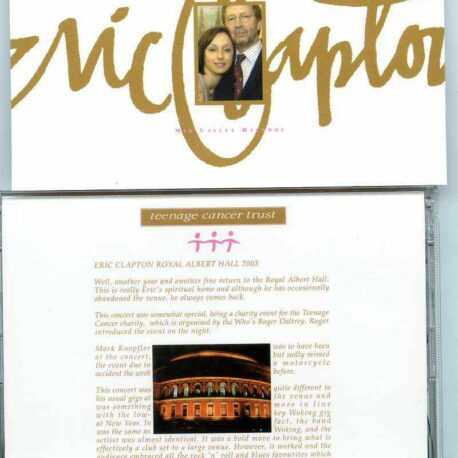 Eric Clapton
MID VALLEY RECORDS
teenage cancer trust
ERIC CLAPTON ROYAL ALBERT HALL 2003
Well, another year and another fine return to the Royal Albert Hall.
This is really Eric's spiritual home and although he has occasionally
abandoned the venue, he always comes back.
This concert was somewhat special, being a charity event for the Teenage
Cancer charity, which is organised by the Who's Roger Daltrey. Roger
introduced the event on the night.
Mark Knopfler was to have been
at the concert, but sadly missed
the event due to a motorcycle
accident the week before.
This concert was quite different to
his usual gigs at the venue and
was something more in line
with the low- key Woking gig
at New Year. In fact, the band
was the same as Woking, and the
setlist was almost identical. It was a bold move to bring what is
effectively a club set to a large venue. However, it worked and the
audience embraced all the rock 'n' roll and blues favourites which